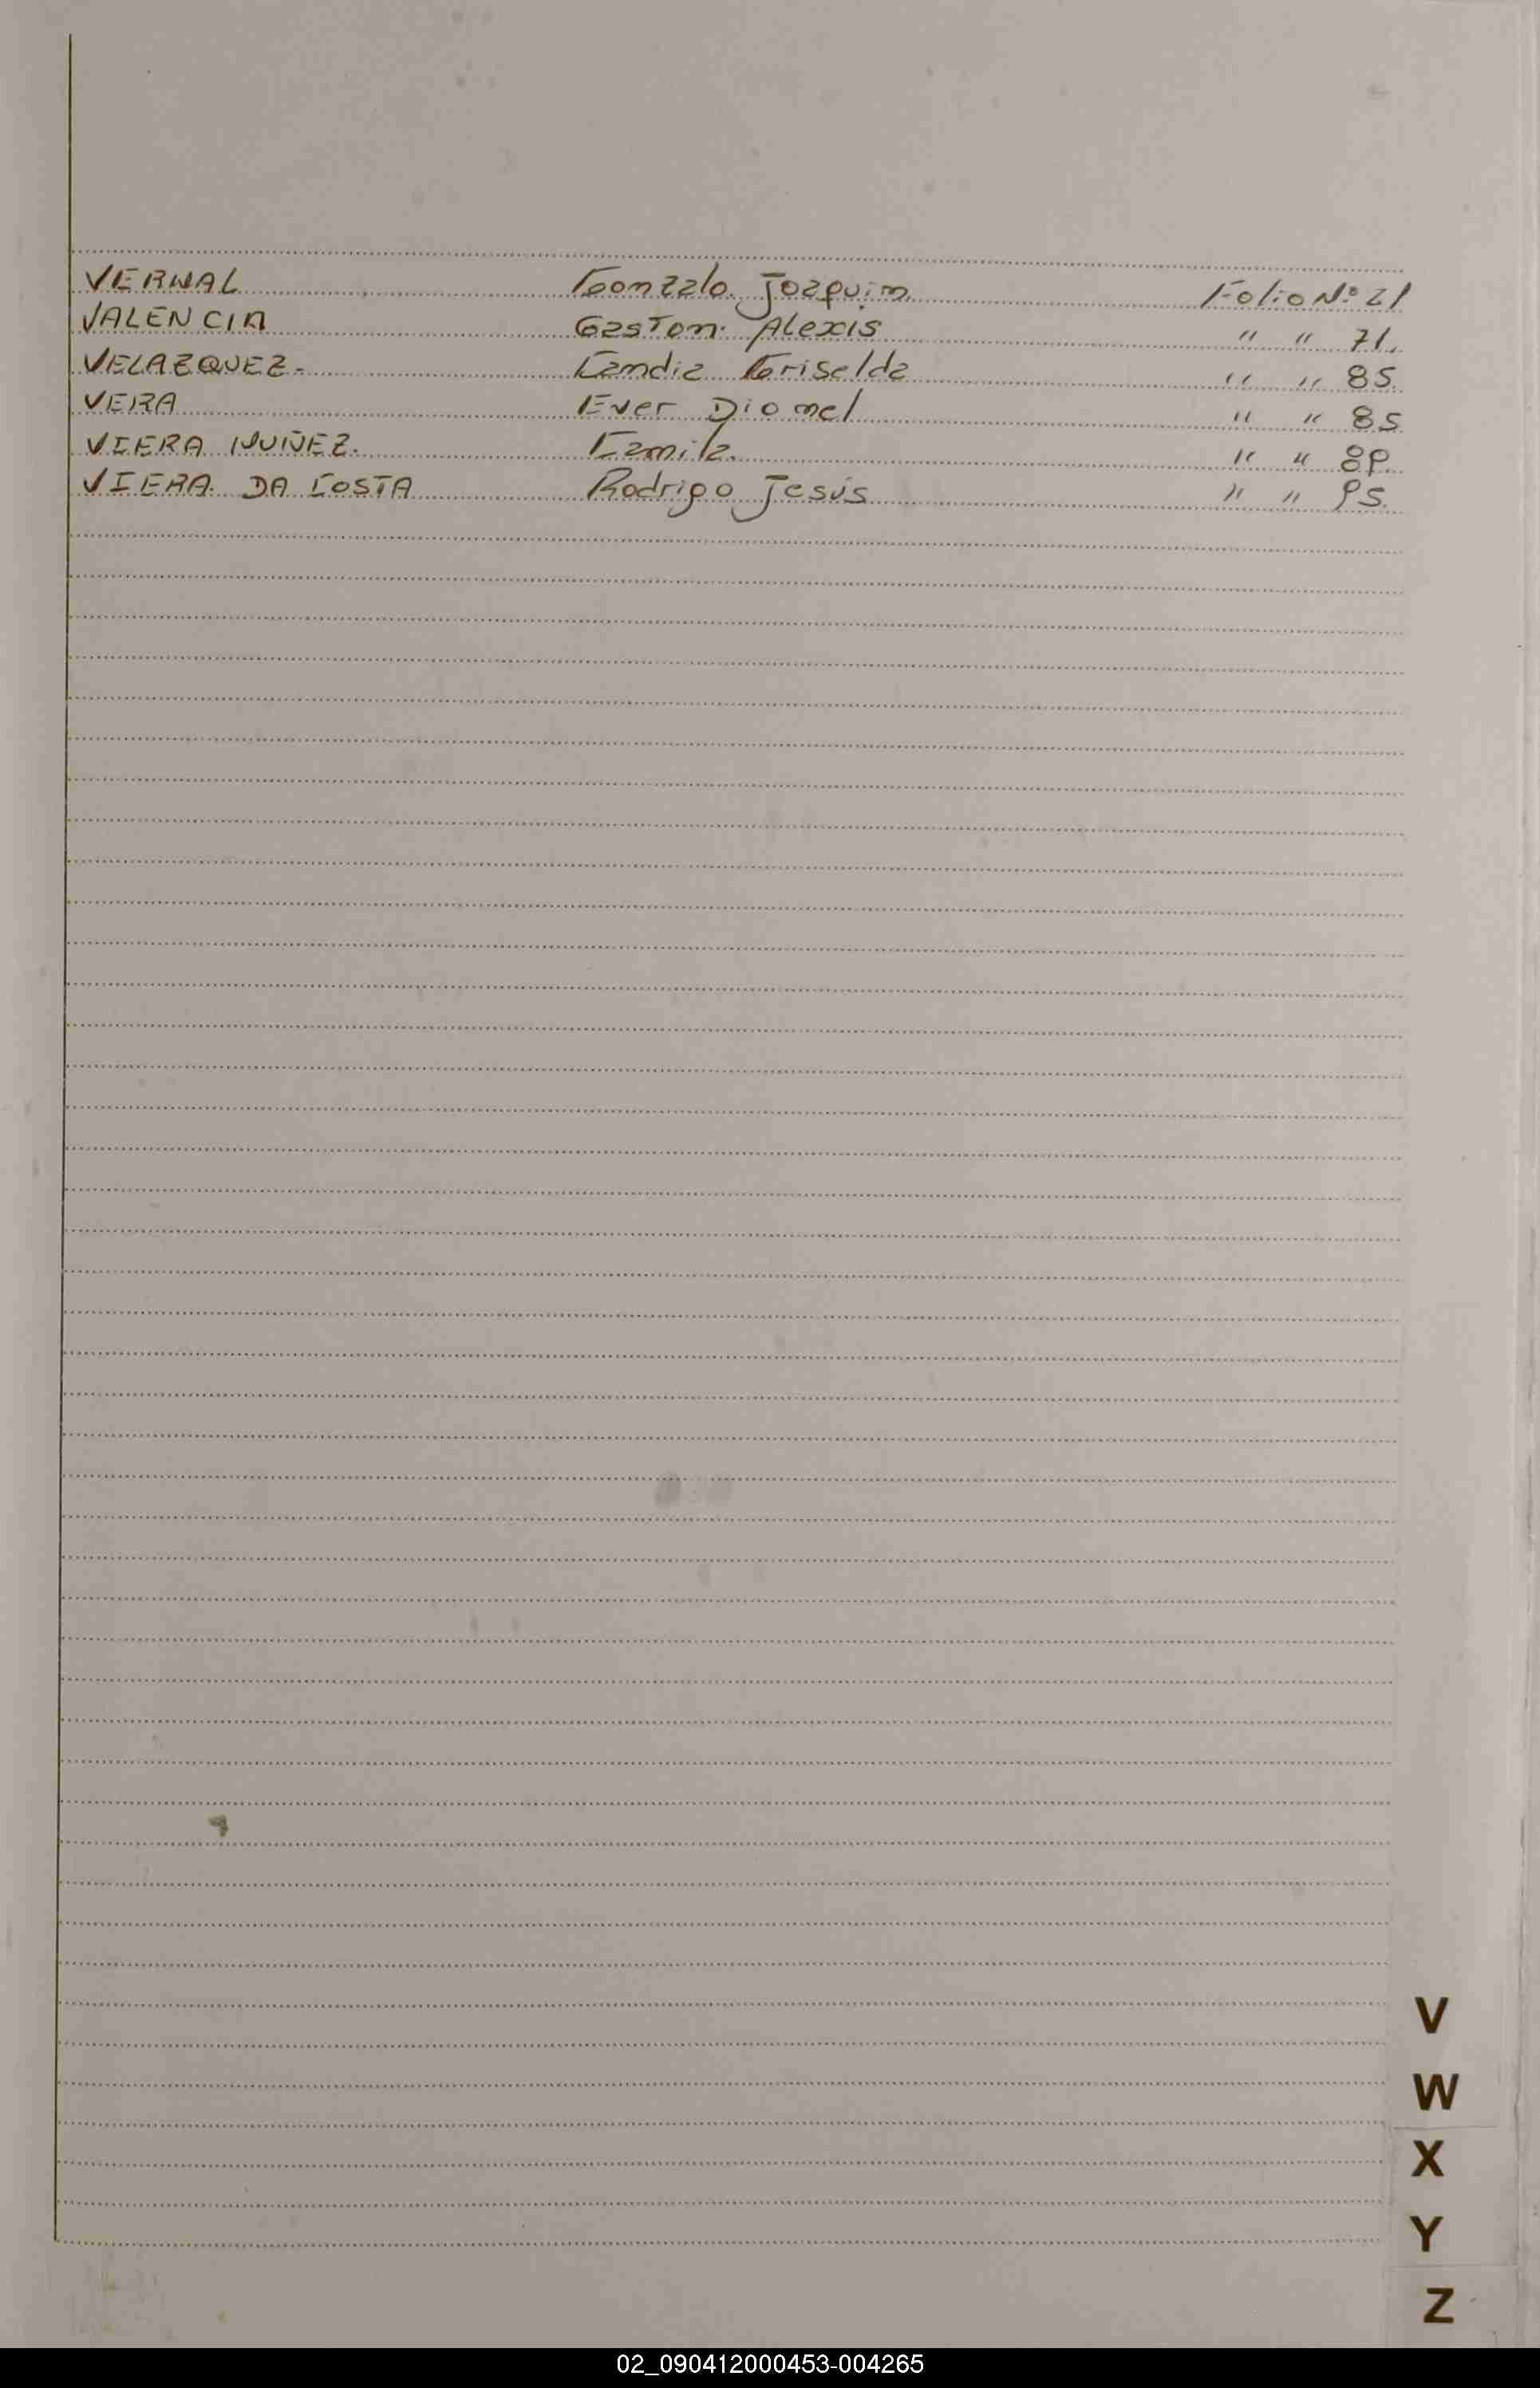 VERNAL Gonzalo Joaquim Folio Nº 21
VALENCIA Gastom. Alexis " " 71.
VELAZQUEZ.- Candia Griselda " " 85.
VERA Ever Diomel " " 85
VIERA NUÑEZ. Camila. " " 89.
VIERA DA COSTA Rodrigo Jesús " " 95.
V
W
X
Y
Z
02_090412000453-004265